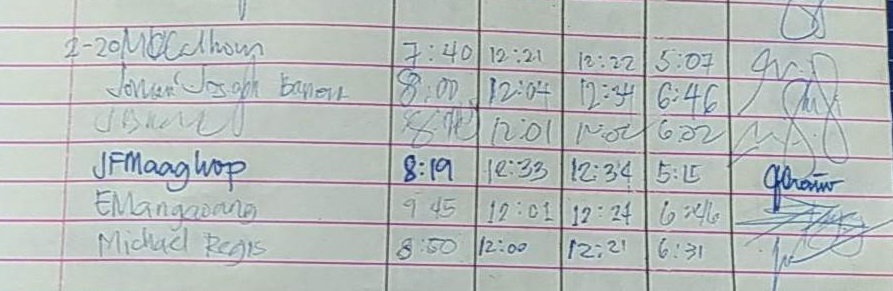 2-20 MDCalhoun 7:40 12:21 12:22 5:07
Joseph 8:00 12:04 12:34 6:46
12:01 6:02
JFMaaghop 8:19 12:33 12:34 5:15
EMangaoang 9 45 12:01 12:24 6:46
Michael Regis 8:50 12:00 12:21 6:31